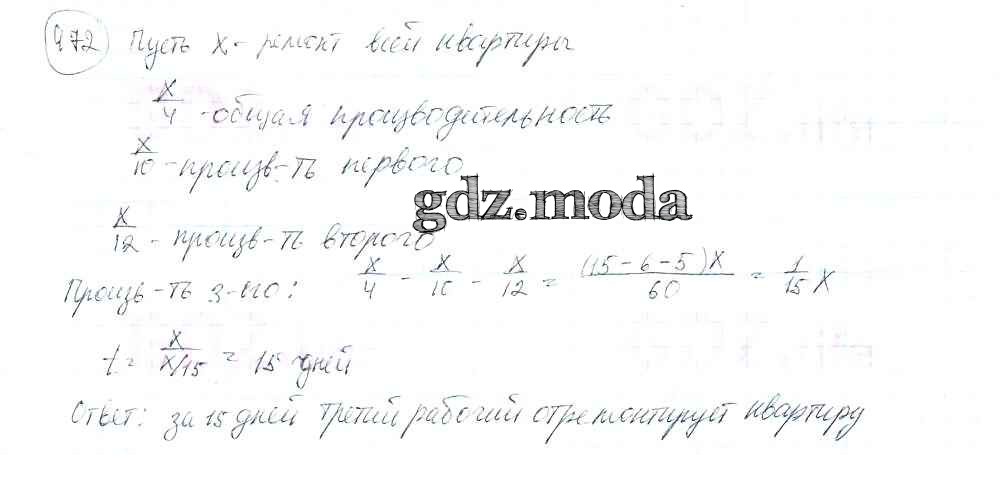 972 Пусть x - ремонт всей квартиры
x/4 - общая производительность
x/10 - произв-ть первого
gdz.moda
x/12 - произв-ть второго
Произв-ть 3-его: x/4 - x/10 - x/12 = (15-6-5)x/60 = 1/15 x
t = x/x/15 = 15 дней
Ответ: за 15 дней третий рабочий отремонтирует квартиру